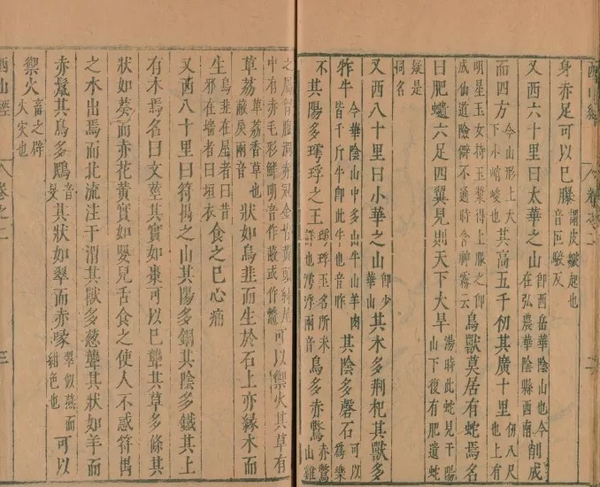 西山經 卷之二
身赤足可以已𦢊謂皮皴起也音叵駁反
又西六十里曰太華之山卽西岳華陰山也今在弘農華陰縣西南削成
而四方今山形上大下小峭峻也其高五千仞其廣十里仞八尺也上有
明星玉女持玉漿得上服之卽成仙道險僻不通詩含神霧云鳥獸莫居有蛇焉名
曰肥𧔥六足四翼見則天下大旱湯時此蛇見于陽山下復有肥遺蛇
疑是同名
又西八十里曰小華之山卽少華山其木多荆杞其獸多
㸲牛今華陰山中多山牛山羊肉皆千斤牛卽此牛也音昨其陰多磬石可以爲樂石
其陽多㻬琈之玉㻬琈玉名所未詳也㻬浮兩音鳥多赤鷩赤鷩山雞
之屬胷腹洞赤冠金背黃頭綠尾中有赤毛彩鮮明音作蔽或作鱉可以禦火其草有
萆荔萆荔香草也蔽戾兩音狀如烏韭而生於石上亦緣木而
生烏韭在屋者曰昔邪在墻者曰垣衣食之已心痛
又西八十里曰符禺之山其陽多銅其陰多鐵其上
有木焉名曰文莖其實如棗可以已聾其草多條其
狀如葵而赤花黃實如嬰兒舌食之使人不惑符禺
之水出焉而北流注于渭其獸多蔥聾其狀如羊而
赤鬣其鳥多鴖音旻其狀如翠而赤喙翠似燕而紺色也可以
禦火畜之辟火災也
西山經 卷之二 三